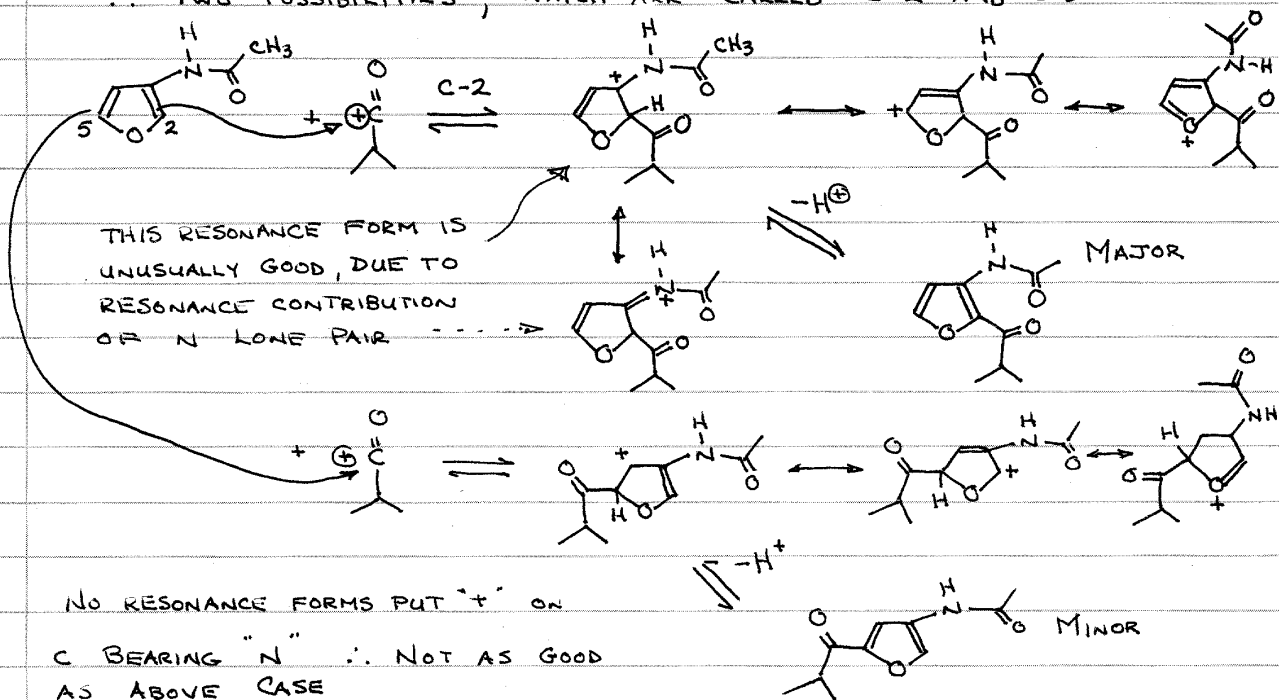 ∴ TWO POSSIBILITIES, WHICH ARE CALLED
C-2
THIS RESONANCE FORM IS
UNUSUALLY GOOD, DUE TO
RESONANCE CONTRIBUTION
OF N LONE PAIR
-H⊕
MAJOR
-H+
NO RESONANCE FORMS PUT "+" ON
C BEARING "N" ∴ NOT AS GOOD
AS ABOVE CASE
MINOR